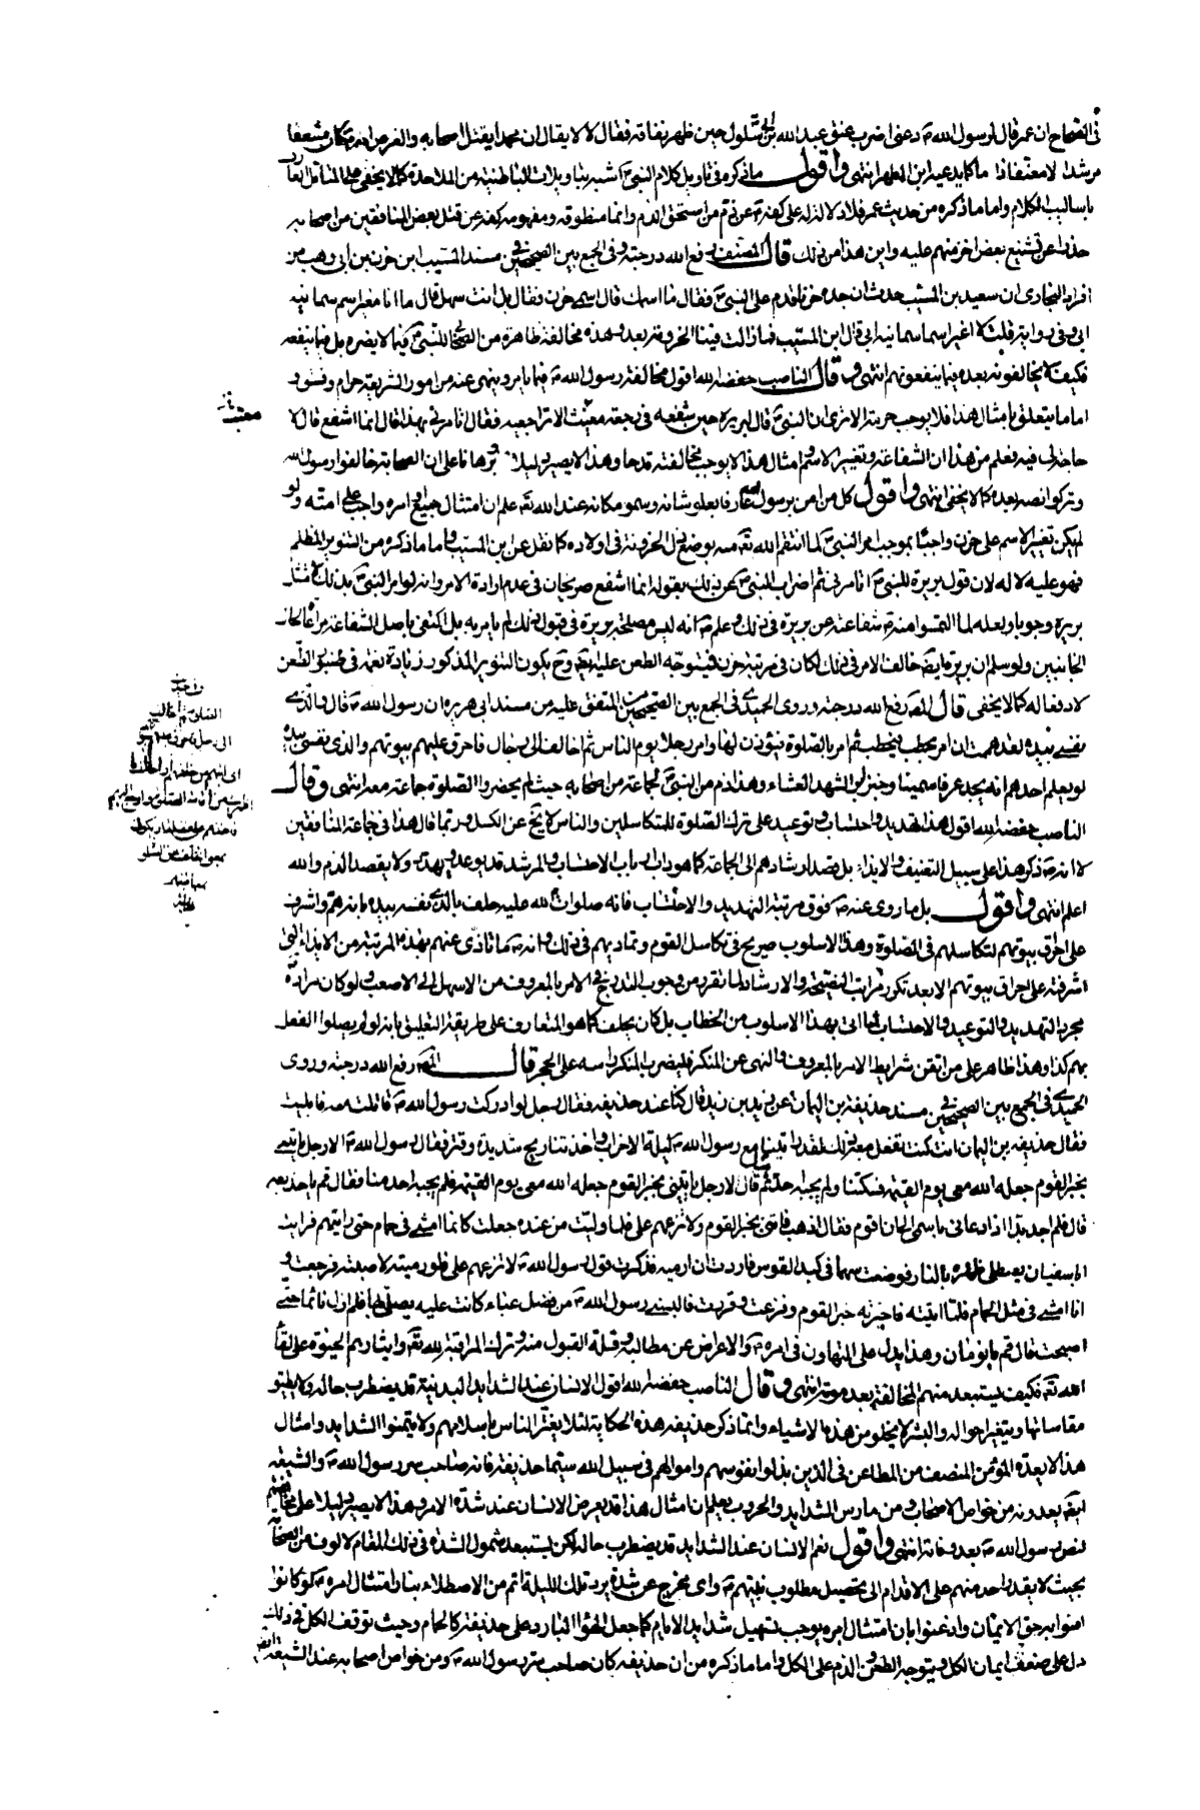 فى الصحاح ان عمر قال لرسول الله ص دعنى اضرب عنق عبد الله بن ابى سلول حين ظهر نفاقه فقال لا لا يقال ان محمدا يقتل اصحابه والغرض انه ص كان
مرشدا لا معتقدا ما كايد عيه ابن المطهر انتهى واقول ما ذكره فى تاويل كلام النبى ص اشبه بتاويلات الباطنية من الملاحدة كما لا يخفى على المتامل العارف
باساليب الكلام واما ما ذكره من حديث عمر فلا دلالة له على كفه ص عن ذم من استحق الذم وانما منطوقه ومفهومه كفه عن قتل بعض المنافقين من اصحابه
حذرا عن تشنيع بعض اخر منهم عليه واين هذا من ذلك قال المصنف رفع الله درجته وفى الجمع بين الصحيحين فى مسند المسيب ابن حزن بن ابى وهب من
افراد البخارى ان سعيد بن المسيب حدث ان جده حزنا قدم على النبى ص فقال ما اسمك قال اسمى حزن فقال بل انت سهل قال ما انا مغير اسم سمانيه
ابى وفى رواية قلت لا اغير اسما سمانيه ابى قال ابن المسيب فما زالت فينا الحزونة بعد وهذه مخالفة ظاهرة من الصحابى للنبى ص فيما لا يضره بل فيما ينفعه
فكيف لا يخالفونه بعده فيما ينفعونهم انتهى وقال الناصب خفضه الله اقول مخالفة رسول الله ص فيما يامر وينهى عنه من امور الشريعة حرام وفسوق
اما ما يتعلق بامثال هذا فلا يوجب حرمة الا ترى ان النبى ص قال لبريرة حين شفعه فى رجعة مغيث الا تراجعيه فقال تامرنى بهذا قال انما اشفع قال لا
حاجة لى فيه فعلم من هذا ان الشفاعة وتغيير الاسم وامثال هذا لا يوجب مخالفته قدحا وهذا لا يصير دليلا وبرهانا على ان الصحابة خالفوا رسول الله
وتركوا نصه بعده كما لا يخفى انتهى واقول كل من امن برسول الله عارفا بعلو شانه وسمو مكانه عند الله تعالى علم ان امتثال جميع اوامره واجب على امته ولو
لم يكن تغيير الاسم على حزن واجبا بموجب امر النبى ص لما انتقم الله تعالى منه بوضع ذل الحزونة فى اولاده كما نقل عن ابن المسيب واما ما ذكره من التنوير المظلم
فهو عليه لا له لان قول بريرة للنبى ص اتامرنى ثم اضراب النبى ص عن ذلك بقوله انما اشفع صريحان فى عدم ارادة الامر وانه لو امر النبى ص بذلك لامتثل
بريرة وجوبا ولعله لما التمسوا منه ص شفاعته عن بريرة فى ذلك وعلم ص انه ليس مصلحة بريرة فى قبول ذلك لم يامر به بل اكتفى باصل الشفاعة مراعاة لحال
الجانبين ولو سلم ان بريرة ايضا خالف الامر فى ذلك لكان فى مرتبة حزن فيتوجه الطعن عليه ايضا وح يكون التنوير المذكور زيادة نغمة فى طنبور الطعن
لا دفعا له كما لا يخفى قال المص رفع الله درجته وروى الحميدى فى الجمع بين الصحيحين من المتفق عليه من مسند ابى هريرة ان رسول الله ص قال والذى
نفسى بيده لقد هممت ان امر بحطب فيحطب ثم امر بالصلوة فيؤذن لها وامر رجلا يؤم الناس ثم اخالف الى رجال فاحرق عليهم بيوتهم والذى نفسى بيده
لو يعلم احدهم انه يجد عرقا سمينا لشهد العشاء وهذا ذم من النبى ص لجماعة من اصحابه حيث لم يحضروا الصلوة جماعة معه انتهى وقال
الناصب خفضه الله اقول هذا تهديد واحتساب وتوعيد على ترك الصلوة للمتكاسلين والناس لا يخ عن الكسل وربما قال هذا فى جماعة المنافقين
لا انه ص ذكر هذا على سبيل التعنيف والايذاء بل قصد ارشادهم الى الجماعة كما هو داب ارباب الاحتساب والمرشد قد يوعد ويهدد ولا يقصد الذم والله
اعلم انتهى واقول بل ما روى عنه ص فوق مرتبة التهديد والاحتساب فانه صلوات الله عليه حلف بالذى نفسه بيده بانه هم واشرف
على احراق بيوتهم لتكاسلهم فى الصلوة وهذا الاسلوب صريح فى تكاسل القوم وتماديهم فى ذلك وانه ص ما تاذى عنهم بهذه المرتبة من الايذاء التى
اشرفته على احراق بيوتهم الا بعد تكرر مراتب النصيحة والارشاد لما تقرر من وجوب التدريج فى الامر بالمعروف من الاسهل الى الاصعب ولو كان مراده
مجرد التهديد والتوعيد والاحتساب لما اتى بهذا الاسلوب من الخطاب بل كان يحلف كما هو المتعارف على طريقة التعليق بانه لو لم يصلوا الفعل
بهم كذا وهذا ظاهر على من اتقن شرايط الامر بالمعروف والنهى عن المنكر فليضرب المنكر راسه على الحجر قال المص رفع الله درجته وروى
الحميدى فى الجمع بين الصحيحين فى مسند حذيفة بن اليمان عن يزيد بن زيد قال كنا عند حذيفة فقال رجل لو ادركت رسول الله ص قاتلت معه فابليت
فقال حذيفة بن اليمان انت كنت تفعل معه ذلك لقد رايتنا مع رسول الله ص ليلة الاحزاب واخذتنا ريح شديدة وقر فقال رسول الله ص الا رجل ياتينى
بخبر القوم جعله الله معى يوم القيمة فسكتنا ولم يجبه احد ثم قال الا رجل ياتينى بخبر القوم جعله الله معى يوم القيمة فلم يجبه احد منا فقال قم يا حذيفة
قال فلم اجد بدا اذ دعانى باسمى الا ان اقوم فقال اذهب فاتنى بخبر القوم ولا تذعرهم على فلما وليت من عنده جعلت كانما امشى فى حمام حتى رايتهم فرايت
ابا سفيان يصطلى ظهره بالنار فوضعت سهما فى كبد القوس فاردت ان ارميه فذكرت قول رسول الله ص لا تذعرهم على ولو رميته لاصبته فرجعت و
انا امشى فى مثل الحمام فلما اتيته فاخبرته خبر القوم وفرغت وقررت فالبسنى رسول الله ص من فضل عباء كانت عليه يصلى فيها فلم ازل نائما حتى
اصبحت قال قم يا نومان وهذا يدل على التهاون فى امره ص والاعراض عن مطالبه وقلة القبول منه وترك المراقبة لله تعالى وايثارهم الحيوة على لقاء
الله تعالى فكيف يستبعد منهم المخالفة بعد موته انتهى وقال الناصب خفضه الله اقول الانسان عند الشدايد البدنية قد يضطرب حاله ولا يطيق
مقاساتها ويتغير احواله والبشر لا يخلو من هذه الاشياء وانما ذكر حذيفة هذه الحكاية لئلا يغتر الناس باسلامهم ولا يتمنوا الشدايد وامثال
هذا لا يعده المؤمن المنصف من المطاعن فى الذين بذلوا نفوسهم واموالهم فى سبيل الله سيما حذيفة فانه صاحب سر رسول الله ص والشيعة
ايضا يعدونه من خواص الاصحاب ومن مارس الشدايد والحروب يعلم ان امثال هذا قد يعرض الانسان عند شدة الامر وهذا لا يصير دليلا على مخالفتهم
لنص رسول الله ص بعد وفاته انتهى واقول نعم الانسان عند الشدايد قد يضطرب حاله لكن يستبعد شمول الشدة فى ذلك المقام لالوف من الصحابة
بحيث لا يقدر واحد منهم على الاقدام الى تحصيل مطلوب نبيهم ص واى مخرج عن شدة برد تلك الليلة اتم من الاصطلاء بنار امتثال امره ص لو كانوا
امنوا به حق الايمان واذعنوا بان امتثال امره يوجب تسهيل شدايد الايام كما جعل الهواء البارد على حذيفة كالحمام وحيث توقف الكل فى ذلك
دل على ضعف ايمان الكل ويتوجه الطعن والذم على الكل واما ما ذكره من ان حذيفة كان صاحب سر رسول الله ص ومن خواص اصحابه عند الشيعة ايضا